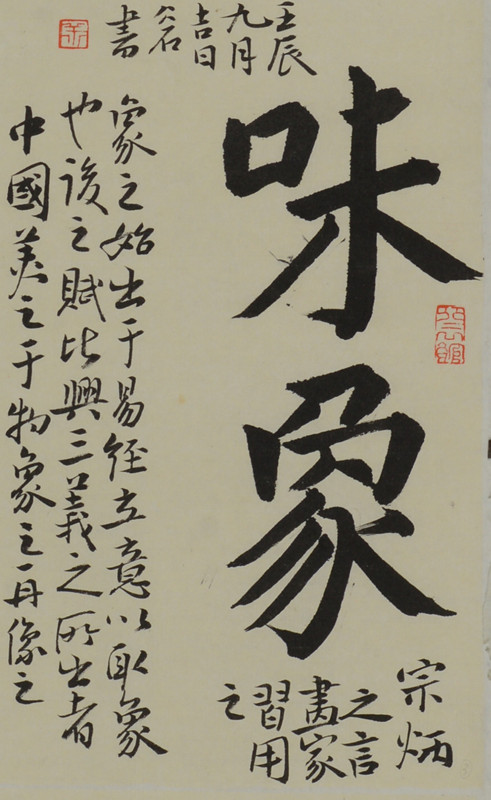 味象
宗炳
之言
畫家
習用
之
象之始出于易經立意以取象
也後之賦比興三義之所出者
中國美之于物象之再像之
壬辰
九月
吉日
書